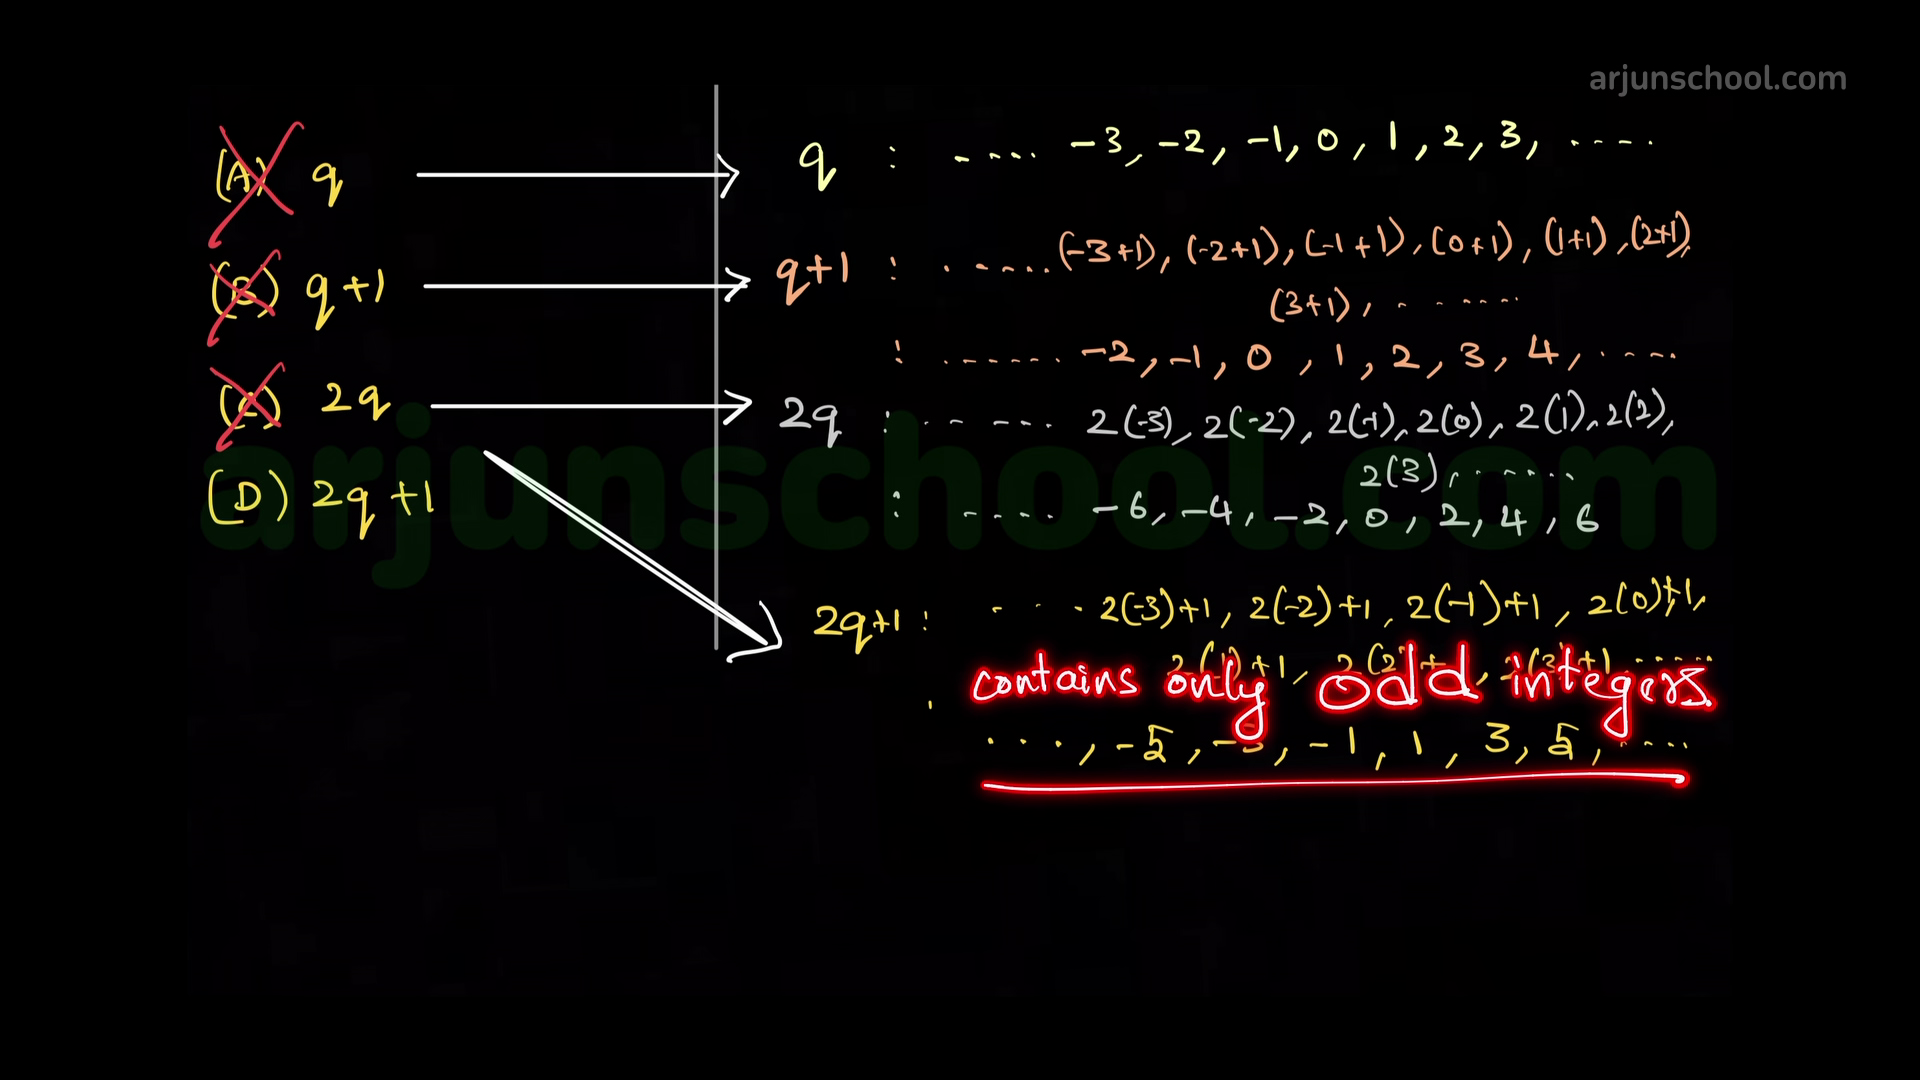 arjunschool.com
(A) q
q : ..... -3, -2, -1, 0, 1, 2, 3, .....
(B) q+1
q+1 : ......(-3+1), (-2+1), (-1+1), (0+1), (1+1), (2+1),
(3+1), .......
: ....... -2, -1, 0, 1, 2, 3, 4, .....
(C) 2q
2q : ...... 2(-3), 2(-2), 2(-1), 2(0), 2(1), 2(2),
2(3), ......
(D) 2q+1
: ..... -6, -4, -2, 0, 2, 4, 6
arjunschool.com
2q+1 : .... 2(-3)+1, 2(-2)+1, 2(-1)+1, 2(0)+1,
contains only odd integers.
..., -5, -3, -1, 1, 3, 5, ....